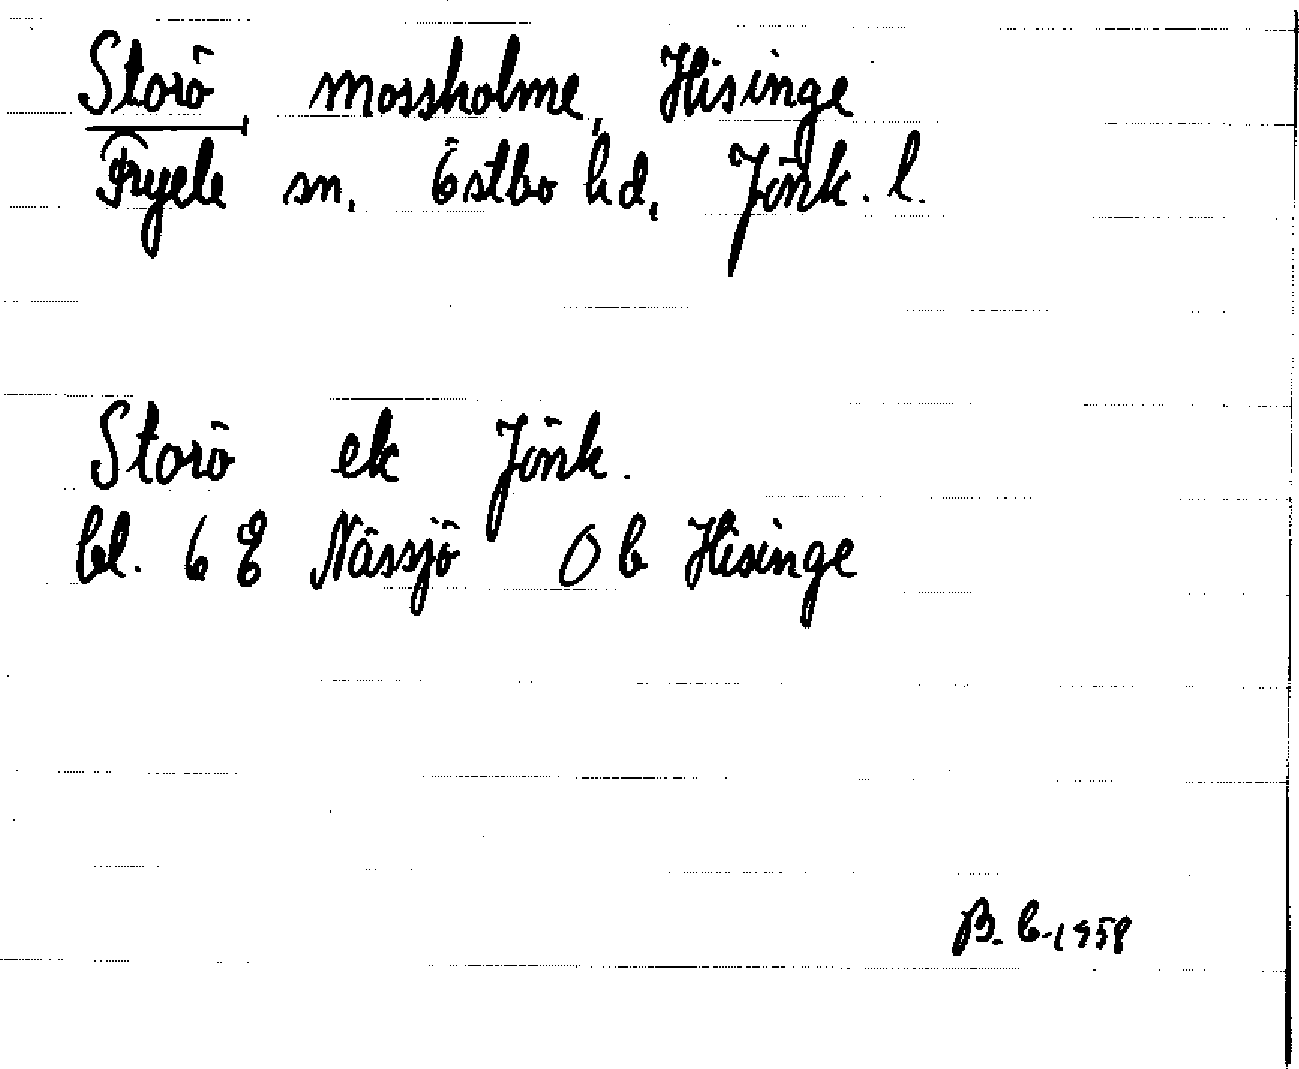 Storö mossholme, Hisinge
Fryele sn. Östbo hd, Jönk. l.
Storö ek Jönk.
bl. 6 E Nässjö 0 b Hisinge
B. 1958